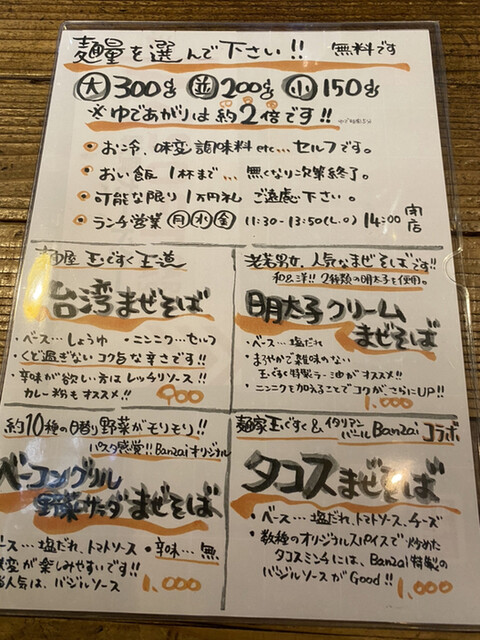 麺量を選んで下さい!! 無料です
大 300g 並 200g 小 150g
※ゆであがりは約2倍です!!
・お冷、味変調味料etc… セルフです。
・おい飯 1杯まで… 無くなり次第終了。
・可能な限り1万円札 ご遠慮下さい。
・ランチ営業 月 水 金 11:30-13:50(L.o) 14:00閉店
麺屋 玉ずく 王道
台湾まぜそば
・ベース…しょうゆ ・ニンニク…セルフ
・くど過ぎないコク旨な辛さです!!
・辛味が欲しい方はレッチリソース!!
カレー粉もオススメ!!
900
老若男女、人気なまぜそばです!!
和&洋!! 2種類の明太子を使用。
明太子クリーム
まぜそば
・ベース…塩だれ
・まろやかで雑味のない
玉ずく特製ラー油がオススメ!!
・ニンニクを加えることでコクがさらにUP!!
1,000
約10種の日替り野菜がモリモリ!!
パスタ感覚!! Banzaiオリジナル
ベーコングリル
野菜サラダまぜそば
ース…塩だれ、トマトソース ・辛味…無
味変が楽しみやすいです!!
人気は、バジルソース
1,000
麺家 玉ずく & イタリアンバール Banzai コラボ
タコスまぜそば
・ベース…塩だれ、トマトソース、チーズ
・数種のオリジナルスパイスで炒めた
タコスミンチには、Banzai特製の
バジルソースがGood!!
1,000